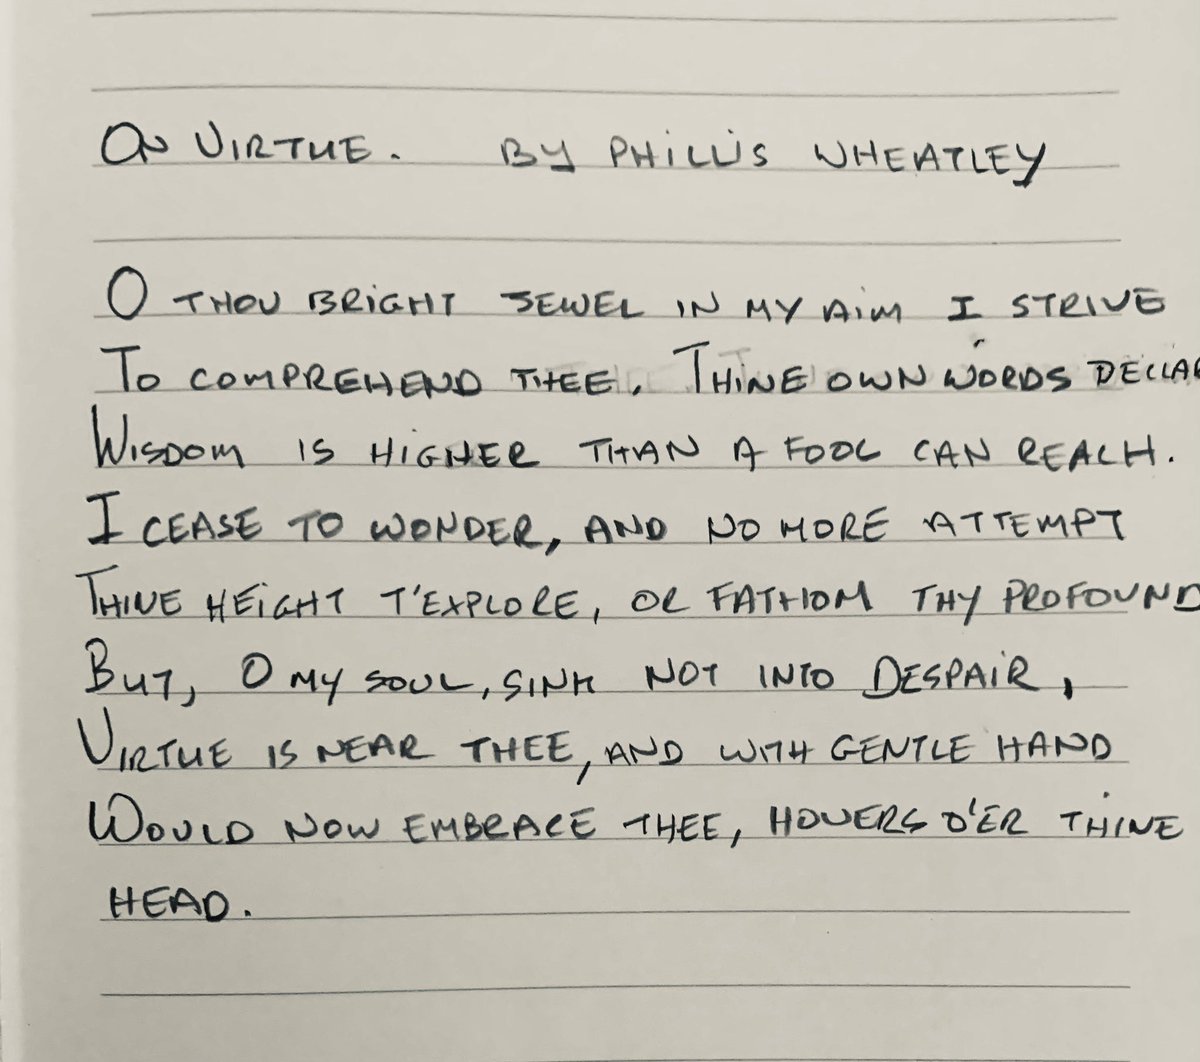 ON VIRTUE. BY PHILLIS WHEATLEY
O THOU BRIGHT JEWEL IN MY AIM I STRIVE
TO COMPREHEND THEE. THINE OWN WORDS DECLAR
WISDOM IS HIGHER THAN A FOOL CAN REACH.
I CEASE TO WONDER, AND NO MORE ATTEMPT
THINE HEIGHT T'EXPLORE, OR FATHOM THY PROFOUND
BUT, O MY SOUL, SINK NOT INTO DESPAIR,
VIRTUE IS NEAR THEE, AND WITH GENTLE HAND
WOULD NOW EMBRACE THEE, HOVERS O'ER THINE
HEAD.